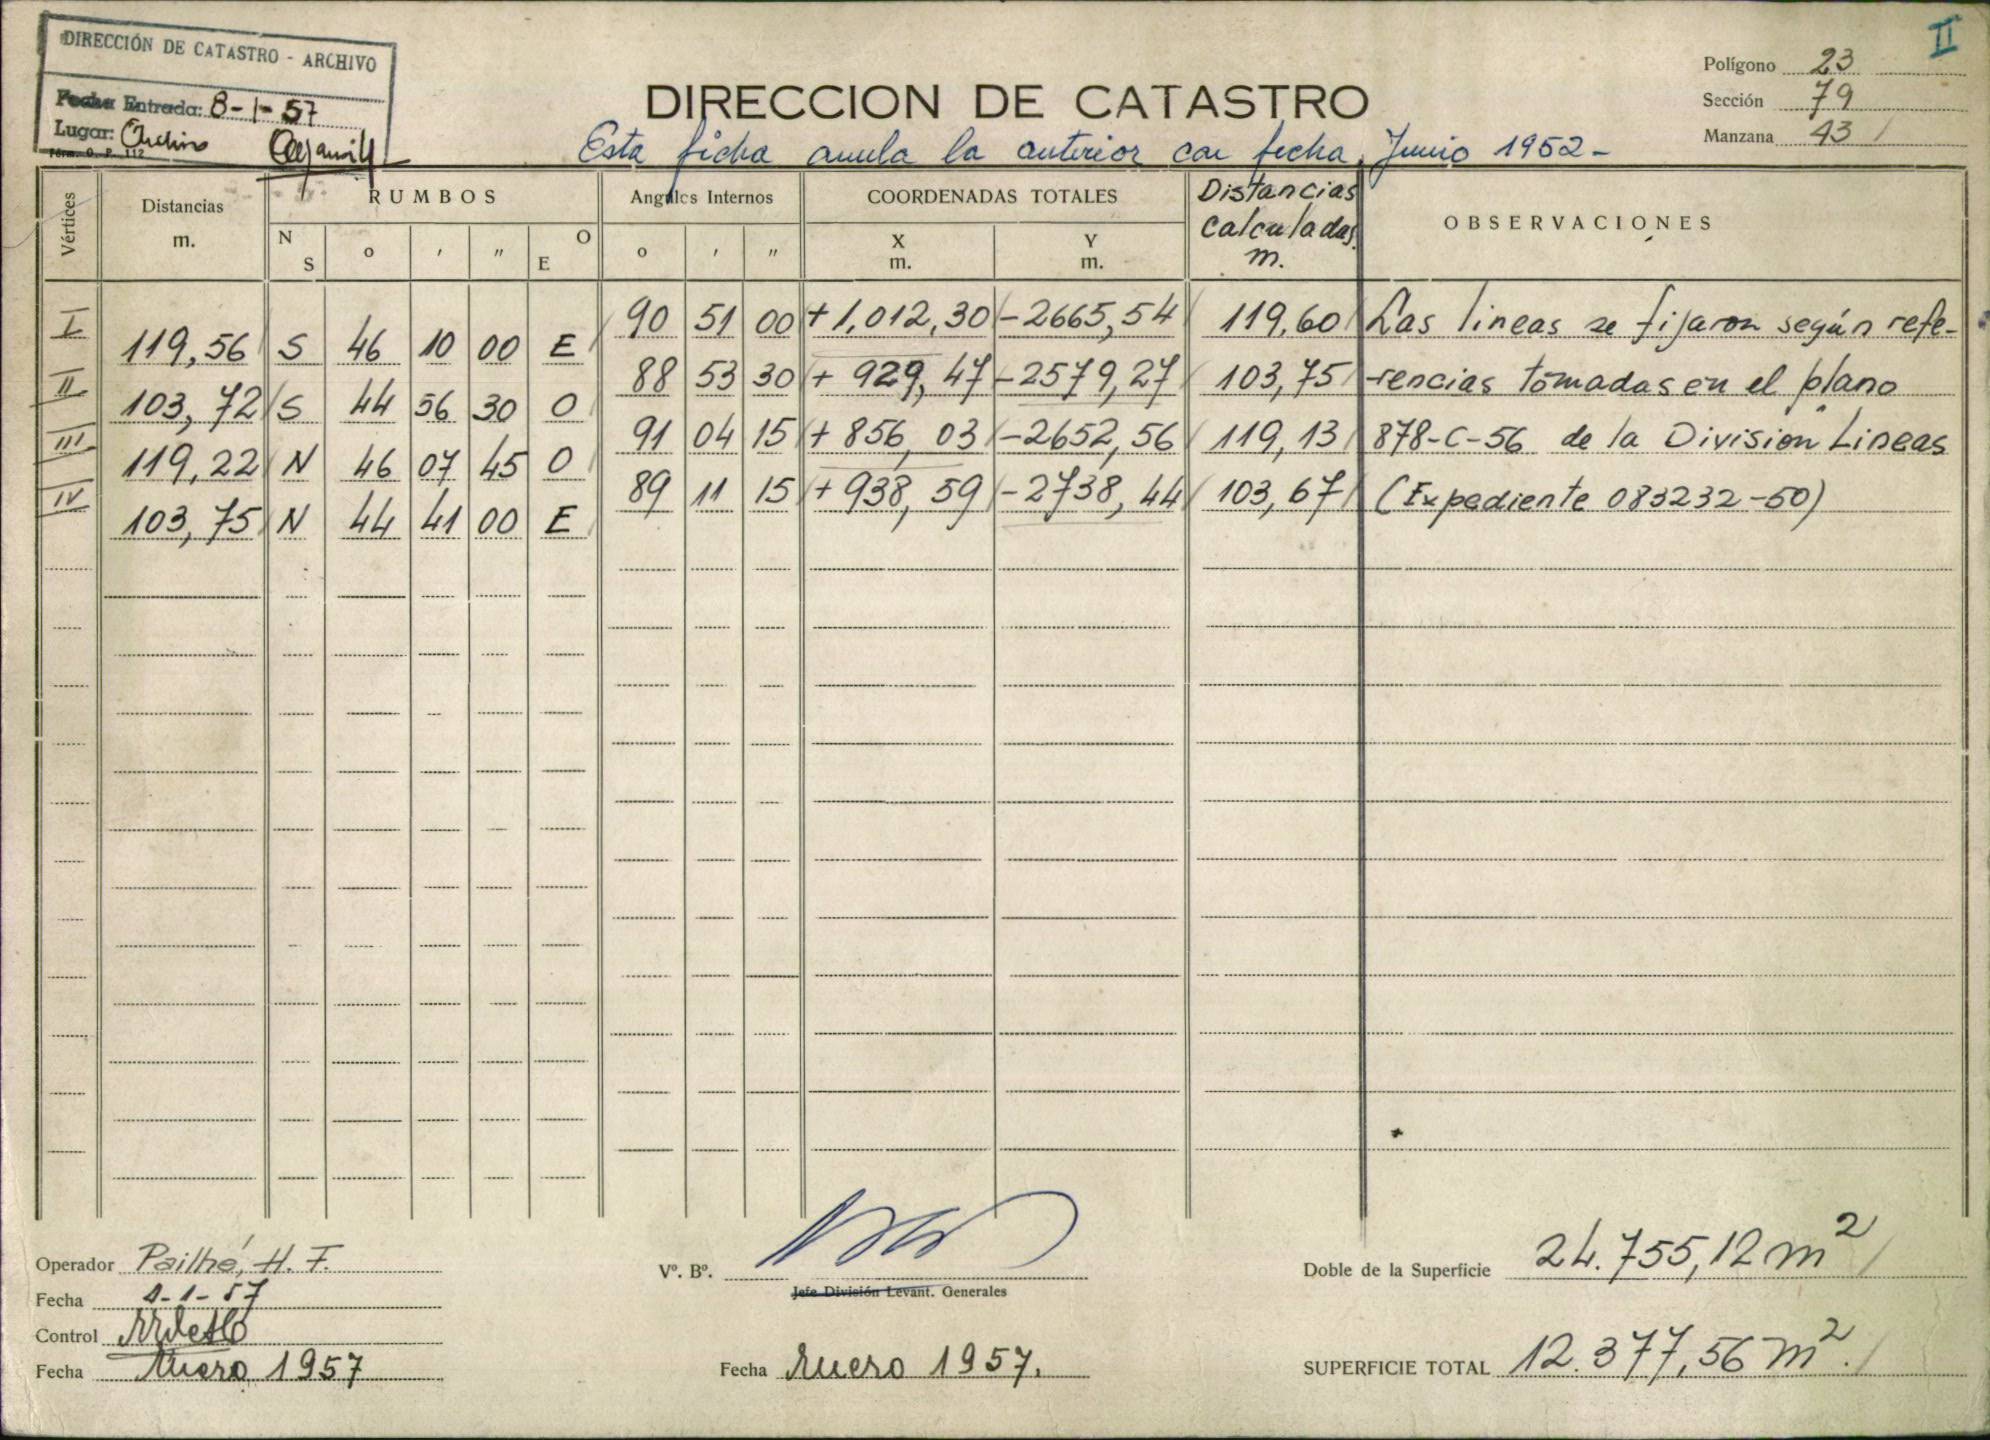 DIRECCIÓN DE CATASTRO - ARCHIVO
Fecha Entrada: 8-1-57
Lugar: Archivo
Form. O. P. 112
II
Polígono 23
Sección 79
Manzana 43
DIRECCION DE CATASTRO
Esta ficha anula la anterior con fecha Junio 1952-
Vértices Distancias m. RUMBOS Angulos Internos COORDENADAS TOTALES Distancias calculadas m. OBSERVACIONES
N S o ' " O E o ' " X m. Y m.
I 90 51 00 +1,012,30 -2665,54 119,60 Las lineas se fijaron según refe-
119,56 S 46 10 00 E
II 88 53 30 + 929,47 -2579,27 103,75 -rencias tomadas en el plano
103,72 S 44 56 30 O
III 91 04 15 + 856,03 -2652,56 119,13 878-C-56 de la Division Lineas
119,22 N 46 07 45 O
IV 89 11 15 + 938,59 -2738,44 103,67 (Expediente 083232-50)
103,75 N 44 41 00 E
Operador Pailhé, H. F.
Fecha 4-1-57
Control
Fecha Enero 1957
Vº. Bº.
Jefe División Levant. Generales
Fecha Enero 1957.
Doble de la Superficie 24.755,12 m2
SUPERFICIE TOTAL 12.377,56 m2.